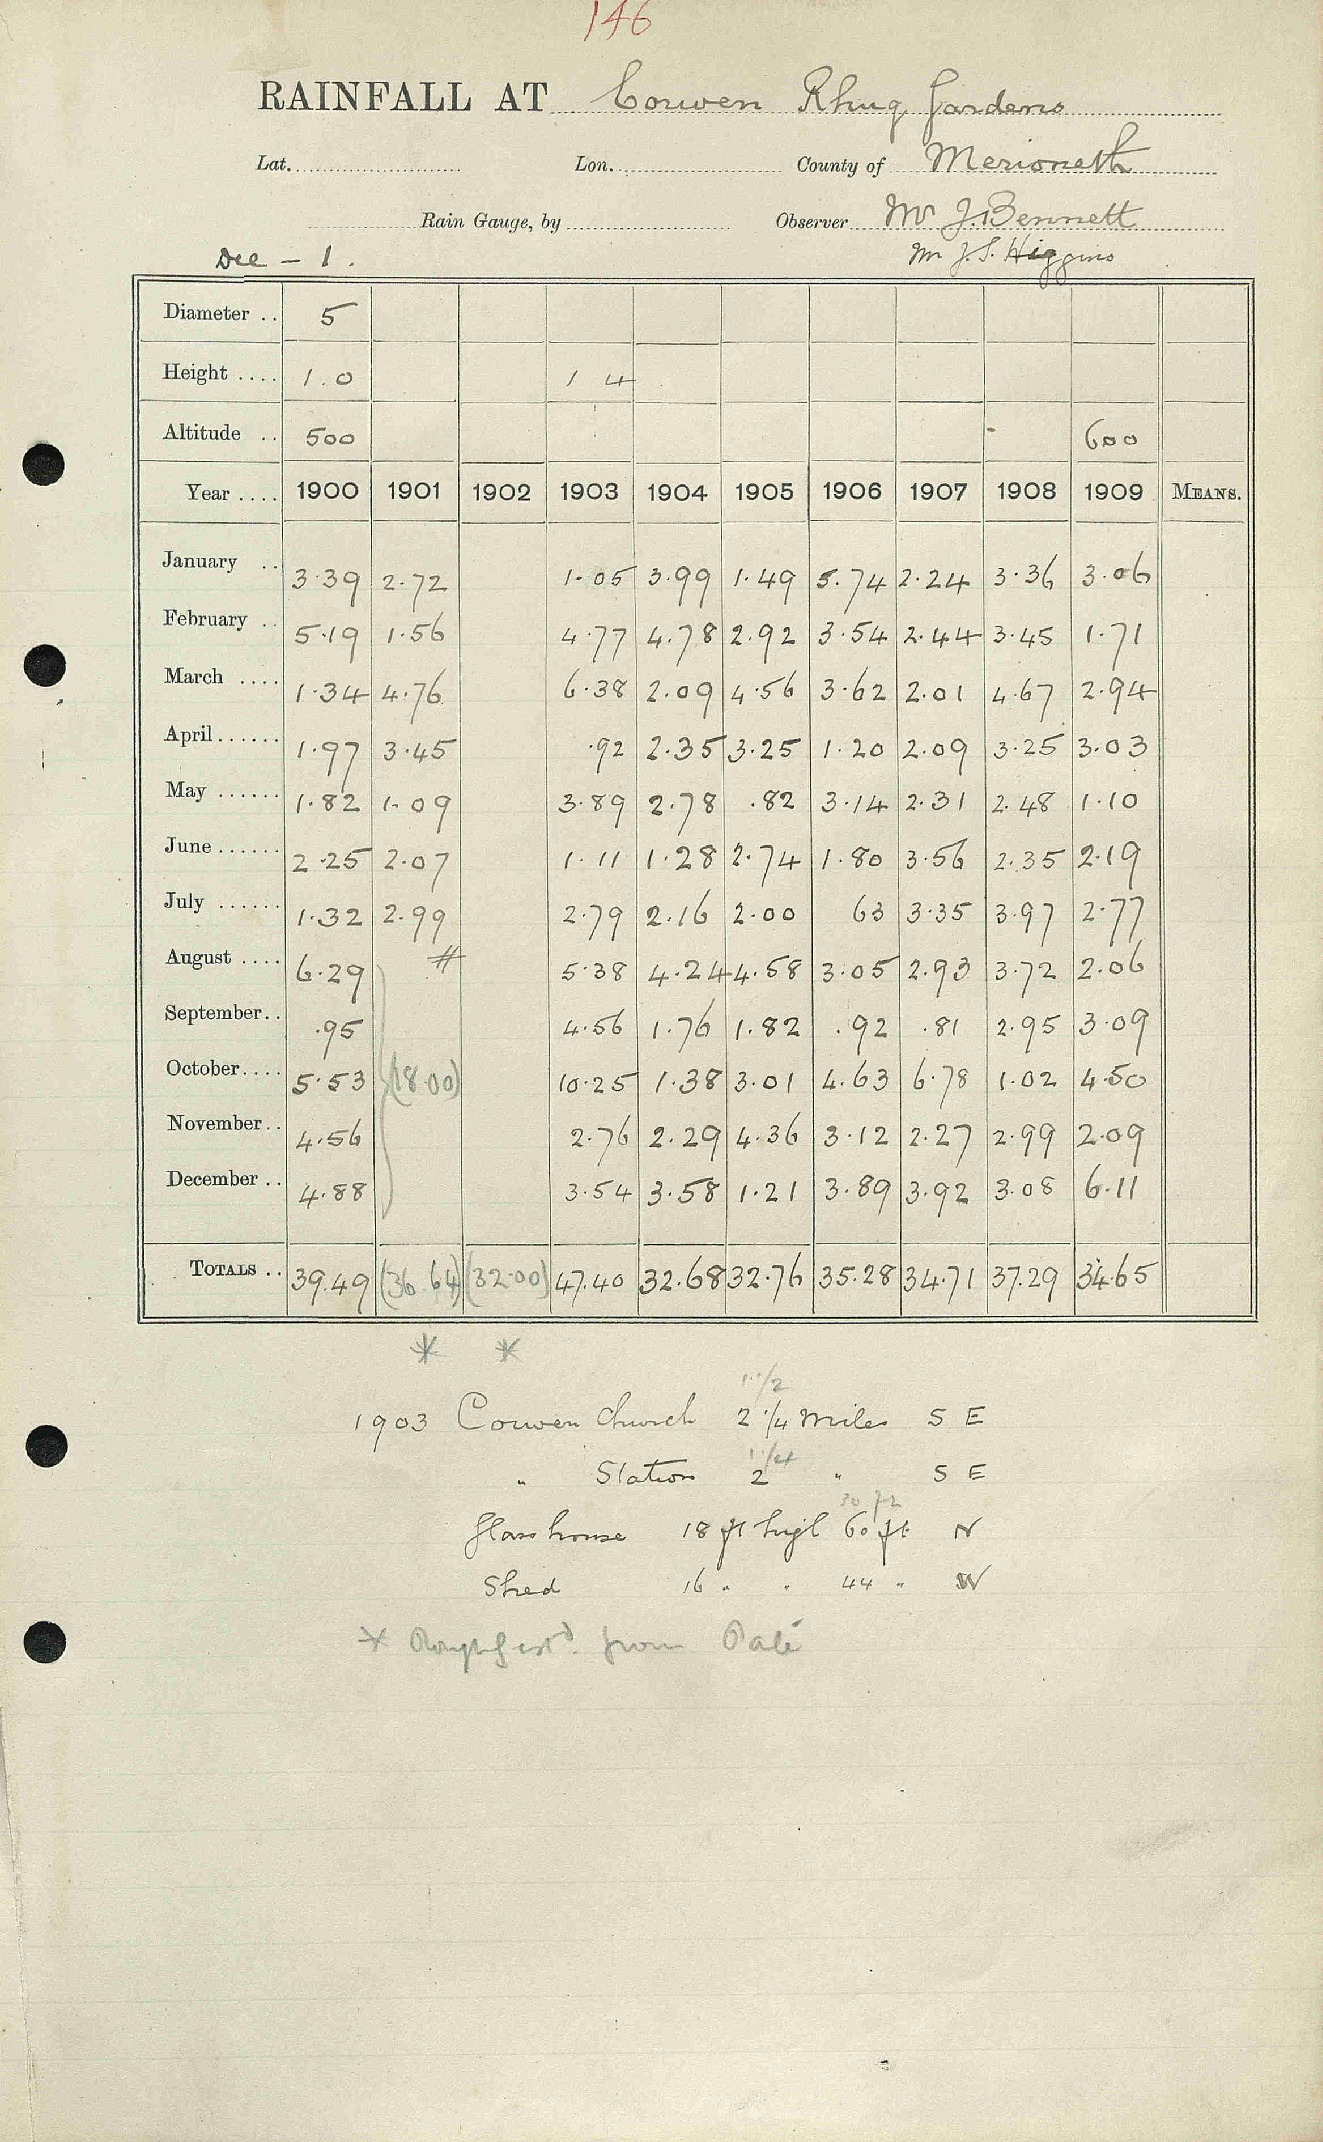 146
RAINFALL AT Corwen Rhug Gardens
Lat. Lon. County of Merioneth
Rain Gauge, by Observer Mr J. Bennett
Dee - 1. Mr J. S. Higgins
Diameter .. 5
Height .... 1.0 1 4
Altitude .. 500 600
Year .... 1900 1901 1902 1903 1904 1905 1906 1907 1908 1909 MEANS.
January .. 3.39 2.72 1.05 3.99 1.49 5.74 2.24 3.36 3.06
February .. 5.19 1.56 4.77 4.78 2.92 3.54 2.44 3.45 1.71
March .... 1.34 4.76 6.38 2.09 4.56 3.62 2.01 4.67 2.94
April ...... 1.97 3.45 .92 2.35 3.25 1.20 2.09 3.25 3.03
May ...... 1.82 1.09 3.89 2.78 .82 3.14 2.31 2.48 1.10
June ...... 2.25 2.07 1.11 1.28 2.74 1.80 3.56 2.35 2.19
July ...... 1.32 2.99 2.79 2.16 2.00 63 3.35 3.97 2.77
August .... 6.29 # 5.38 4.24 4.58 3.05 2.93 3.72 2.06
September.. .95 4.56 1.76 1.82 .92 .81 2.95 3.09
October.... 5.53 (18.00) 10.25 1.38 3.01 4.63 6.78 1.02 4.50
November.. 4.56 2.76 2.29 4.36 3.12 2.27 2.99 2.09
December .. 4.88 3.54 3.58 1.21 3.89 3.92 3.08 6.11
TOTALS .. 39.49 (36.64) (32.00) 47.40 32.68 32.76 35.28 34.71 37.29 34.65
* *
1 1/2
1903 Corwen Church 2 1/4 Miles S E
1 1/4
" Station 2 " S E
30 ft
Glass house 18 ft high 60 ft N
Shed 16 " " 44 " W
* Rough est'd. from Palé